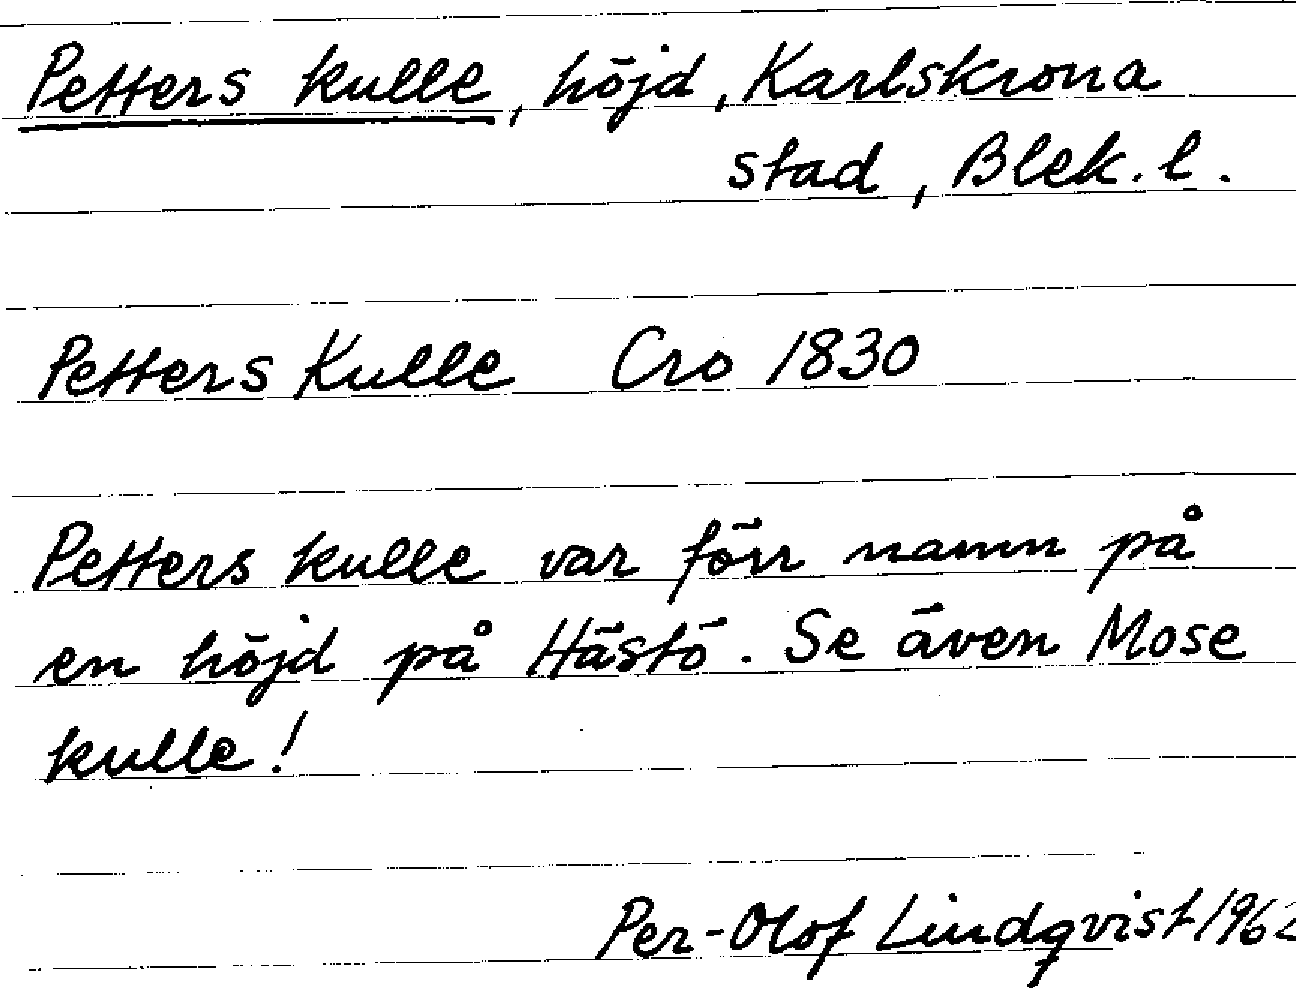 Petters kulle, höjd, Karlskrona
stad, Blek. l.
Petters Kulle Cro 1830
Petters kulle var förr namn på
en höjd på Hästö. Se även Mose
kulle!
Per-Olof Lindqvist 1962